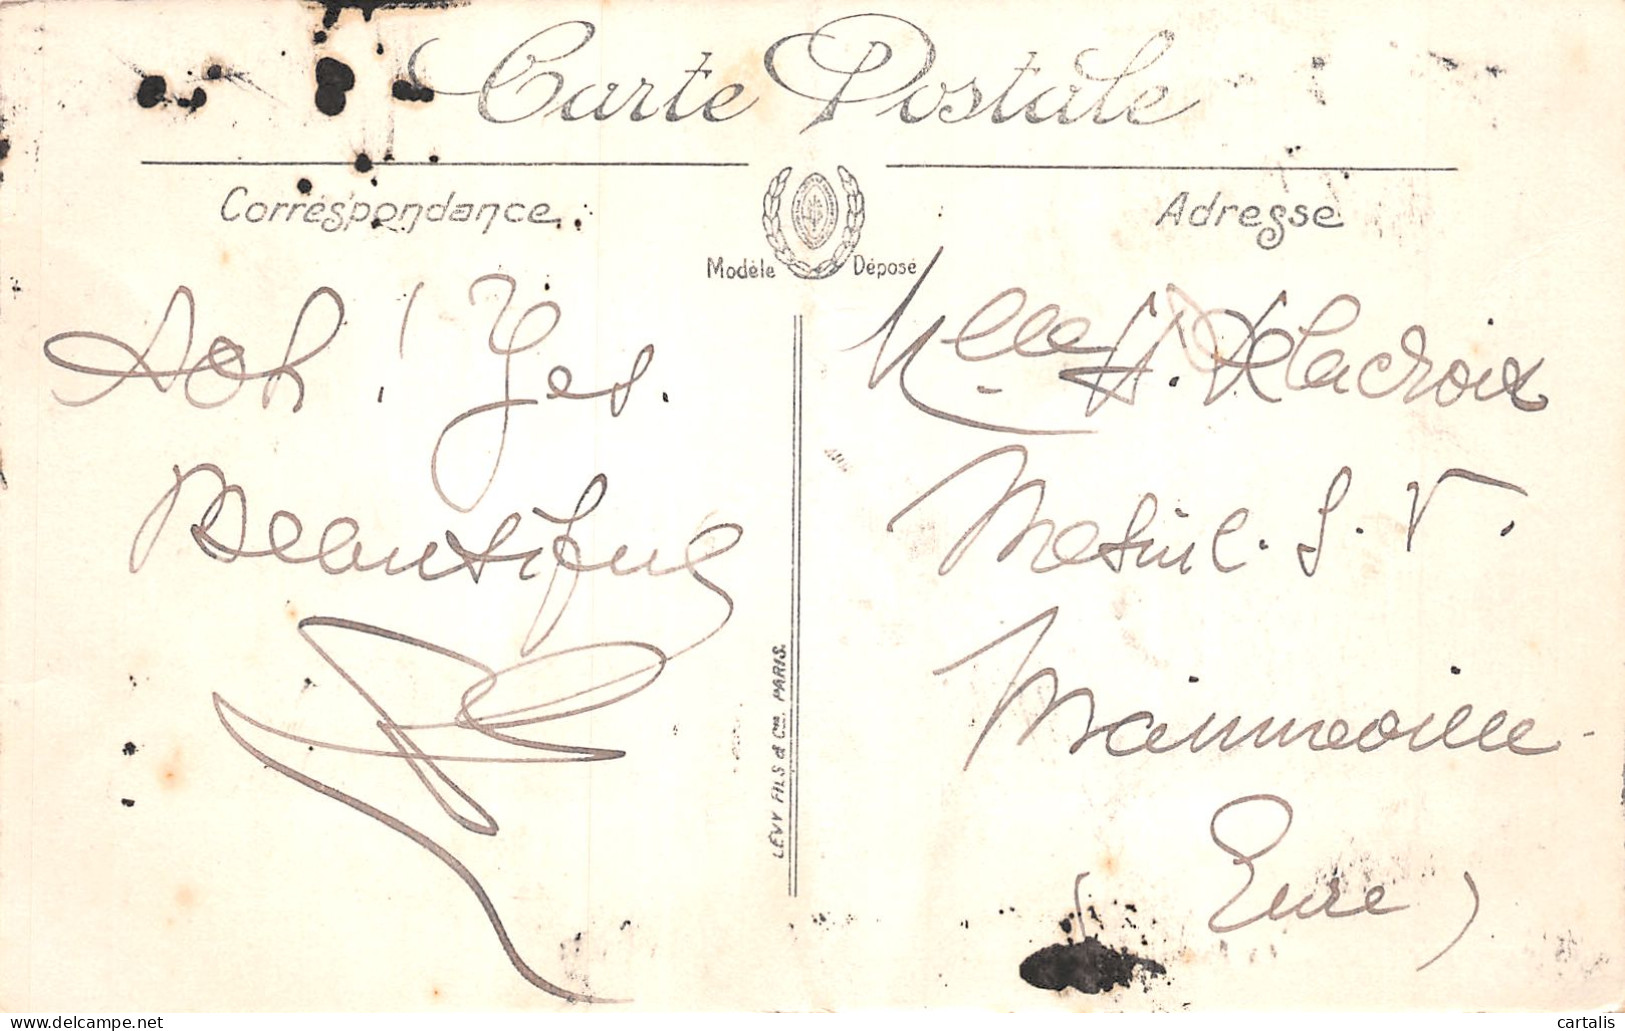 Carte Postale
Correspondance
Adresse
Modèle Déposé
Aoh ! Yes.
Beautiful
LÉVY FILS & Cie. PARIS.
Mlle H. Delacroix
Mesnil. S. V.
Mainneville
(Eure)
delcampe.net
cartalis